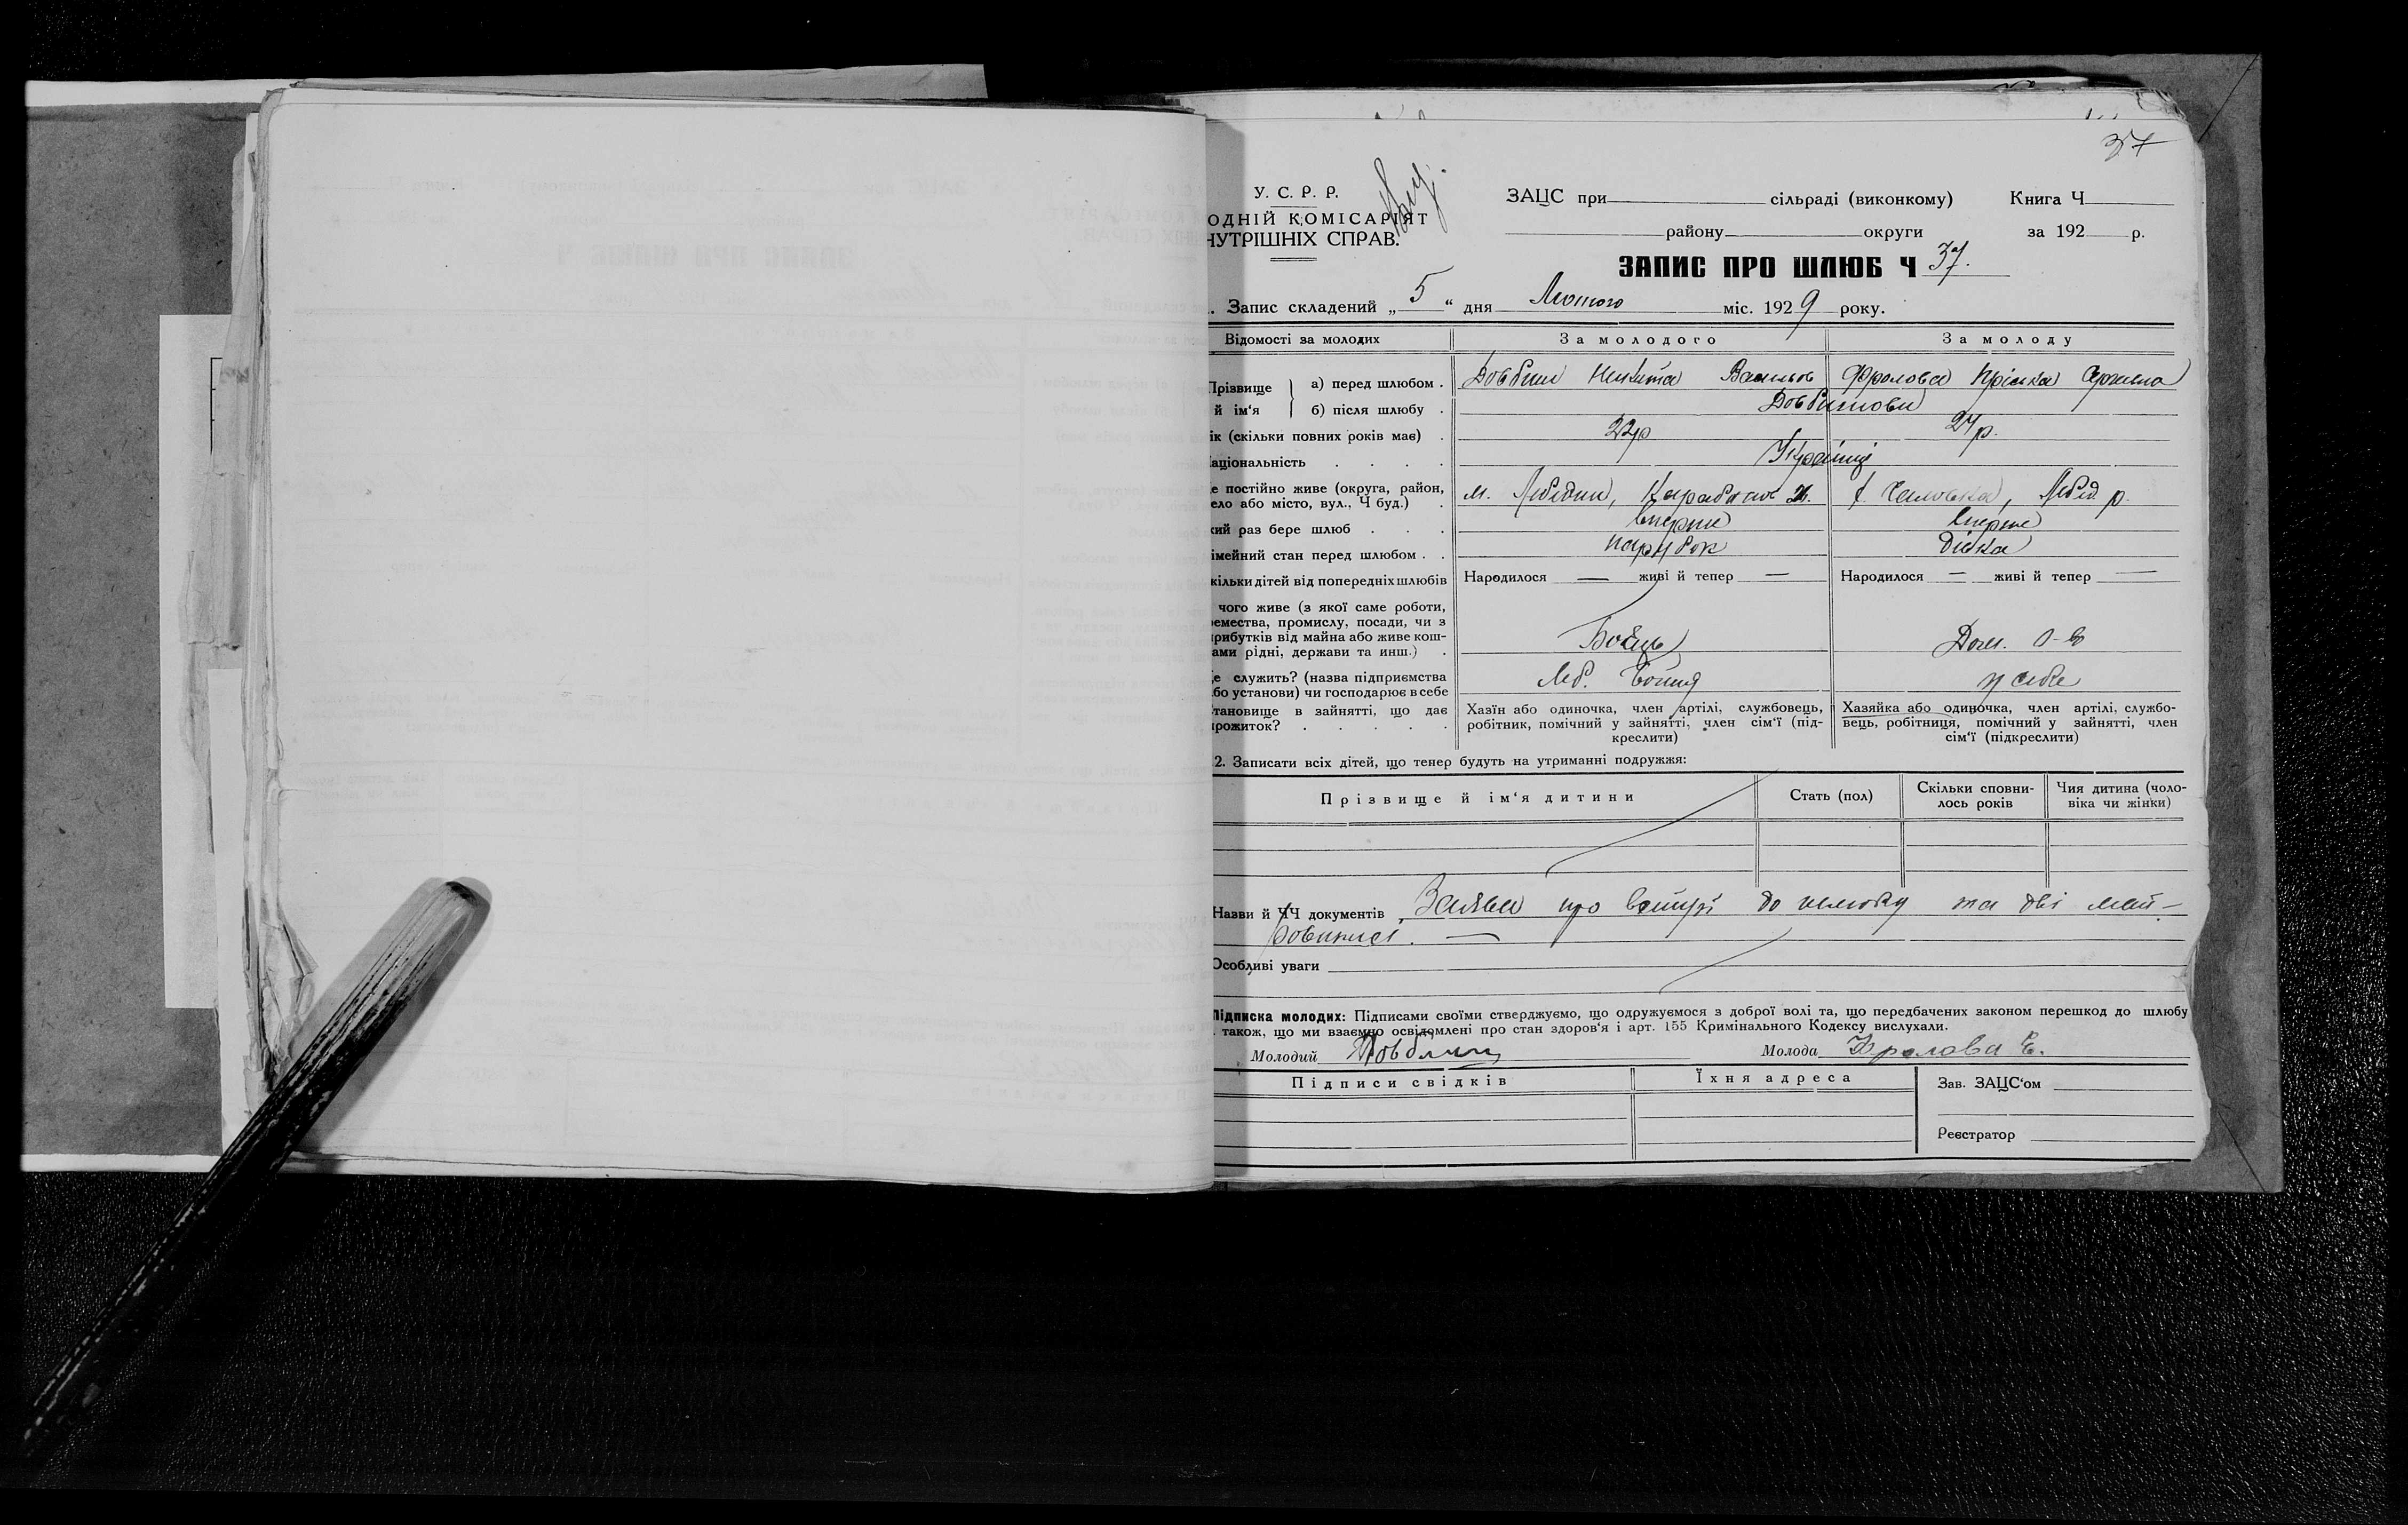 37
У. С. Р. Р.
ОДНІЙ КОМІСАРІЯТ
НУТРІШНІХ СПРАВ.
ЗАЦС при сільраді (виконкому) Книга Ч
району округи за 192 р.
ЗАПИС ПРО ШЛЮБ Ч 37.
. Запис складений „ 5 “ дня Лютого міс. 1929 року.
Відомості за молодих За молодого За молоду
Прізвище й ім‘я а) перед шлюбом . Довбиш Никита Васильов Фролова Пріська
б) після шлюбу . Довбишови
ік (скільки повних років має) . 22р 24р.
аціональність . . . . Українці
е постійно живе (округа, район, м. Лебедин, 26. с. Лебед. р.
ело або місто, вул., Ч буд.) .
кий раз бере шлюб . . . вперше вперше
імейний стан перед шлюбом . . парубок дівка
кільки дітей від попередніх шлюбів Народилося — живі й тепер — Народилося — живі й тепер —
чого живе (з якої саме роботи,
емества, промислу, посади, чи з
рибутків від майна або живе кош-
ами рідні, держави та инш.) . Боєць Дом. г-во
е служить? (назва підприємства Леб. у себе
бо установи) чи господарює в себе
тановище в зайнятті, що дає
рожиток? . . . . .
Хазїн або одиночка, член артілі, службовець,
робітник, помічний у зайнятті, член сім‘ї (під-
креслити)
Хазяйка або одиночка, член артілі, службо-
вець, робітниця, помічний у зайнятті, член
сім‘ї (підкреслити)
2. Записати всіх дітей, що тепер будуть на утриманні подружжя:
Прізвище й ім‘я дитини Стать (пол) Скільки сповни- лось років Чия дитина (чоло- віка чи жінки)
Назви й ЧЧ документів Заява про вступ до шлюбу та дві
Особливі уваги
Підписка молодих: Підписами своїми стверджуємо, що одружуємося з доброї волі та, що передбачених законом перешкод до шлюбу
також, що ми взаємно освідомлені про стан здоров‘я і арт. 155 Кримінального Кодексу вислухали.
Молодий Довбиш Молода Фролова Є.
Підписи свідків Їхня адреса Зав. ЗАЦС‘ом
Реєстратор